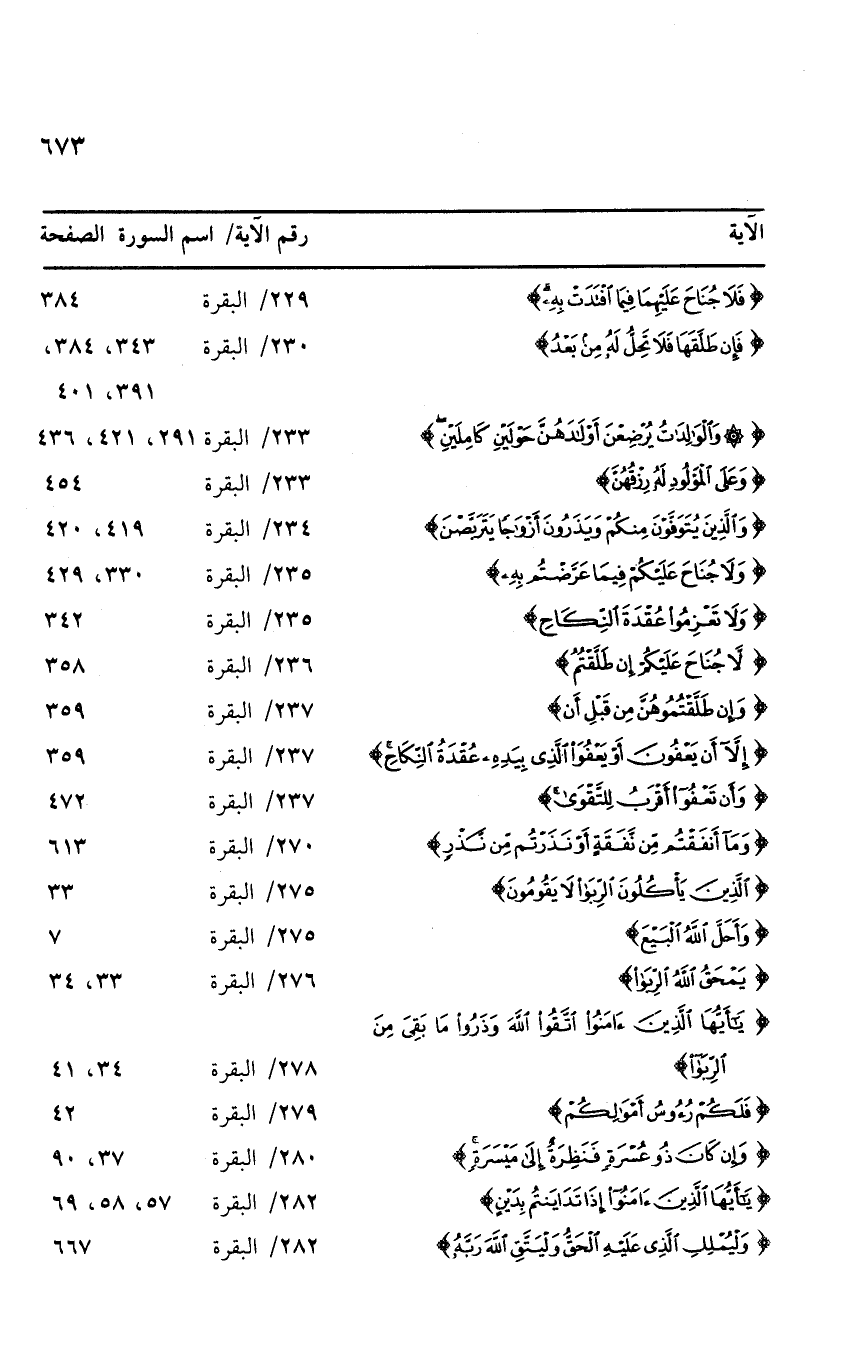 ٦٧٣
الآية رقم الآية/ اسم السورة الصفحة
﴿ فَلَا جُنَاحَ عَلَيْهِمَا فِيمَا ٱفْتَدَتْ بِهِۦۗ﴾ ٢٢٩/ البقرة ٣٨٤
﴿ فَإِن طَلَّقَهَا فَلَا تَحِلُّ لَهُۥ مِنۢ بَعْدُ﴾ ٢٣٠/ البقرة ٣٤٣، ٣٨٤،
٣٩١، ٤٠١
﴿ ۞ وَٱلْوَٰلِدَٰتُ يُرْضِعْنَ أَوْلَٰدَهُنَّ حَوْلَيْنِ كَامِلَيْنِۖ ﴾ ٢٣٣/ البقرة ٢٩١، ٤٢١، ٤٣٦
﴿ وَعَلَى ٱلْمَوْلُودِ لَهُۥ رِزْقُهُنَّ﴾ ٢٣٣/ البقرة ٤٥٤
﴿ وَٱلَّذِينَ يُتَوَفَّوْنَ مِنكُمْ وَيَذَرُونَ أَزْوَٰجًا يَتَرَبَّصْنَ﴾ ٢٣٤/ البقرة ٤١٩، ٤٢٠
﴿ وَلَا جُنَاحَ عَلَيْكُمْ فِيمَا عَرَّضْتُم بِهِۦ﴾ ٢٣٥/ البقرة ٣٣٠، ٤٢٩
﴿ وَلَا تَعْزِمُوا۟ عُقْدَةَ ٱلنِّكَاحِ﴾ ٢٣٥/ البقرة ٣٤٢
﴿ لَّا جُنَاحَ عَلَيْكُمْ إِن طَلَّقْتُمُ﴾ ٢٣٦/ البقرة ٣٥٨
﴿ وَإِن طَلَّقْتُمُوهُنَّ مِن قَبْلِ أَن﴾ ٢٣٧/ البقرة ٣٥٩
﴿ إِلَّآ أَن يَعْفُونَ أَوْ يَعْفُوَا۟ ٱلَّذِى بِيَدِهِۦ عُقْدَةُ ٱلنِّكَاحِۚ﴾ ٢٣٧/ البقرة ٣٥٩
﴿ وَأَن تَعْفُوٓا۟ أَقْرَبُ لِلتَّقْوَىٰۚ﴾ ٢٣٧/ البقرة ٤٧٢
﴿ وَمَآ أَنفَقْتُم مِّن نَّفَقَةٍ أَوْ نَذَرْتُم مِّن نَّذْرٍ﴾ ٢٧٠/ البقرة ٦١٣
﴿ ٱلَّذِينَ يَأْكُلُونَ ٱلرِّبَوٰا۟ لَا يَقُومُونَ﴾ ٢٧٥/ البقرة ٣٣
﴿ وَأَحَلَّ ٱللَّهُ ٱلْبَيْعَ﴾ ٢٧٥/ البقرة ٧
﴿ يَمْحَقُ ٱللَّهُ ٱلرِّبَوٰا۟﴾ ٢٧٦/ البقرة ٣٣، ٣٤
﴿ يَٰٓأَيُّهَا ٱلَّذِينَ ءَامَنُوا۟ ٱتَّقُوا۟ ٱللَّهَ وَذَرُوا۟ مَا بَقِىَ مِنَ
ٱلرِّبَوٰٓا۟﴾ ٢٧٨/ البقرة ٣٤، ٤١
﴿ فَلَكُمْ رُءُوسُ أَمْوَٰلِكُمْ﴾ ٢٧٩/ البقرة ٤٢
﴿ وَإِن كَانَ ذُو عُسْرَةٍ فَنَظِرَةٌ إِلَىٰ مَيْسَرَةٍۚ﴾ ٢٨٠/ البقرة ٣٧، ٩٠
﴿ يَٰٓأَيُّهَا ٱلَّذِينَ ءَامَنُوٓا۟ إِذَا تَدَايَنتُم بِدَيْنٍ﴾ ٢٨٢/ البقرة ٥٧، ٥٨، ٦٩
﴿ وَلْيُمْلِلِ ٱلَّذِى عَلَيْهِ ٱلْحَقُّ وَلْيَتَّقِ ٱللَّهَ رَبَّهُۥ﴾ ٢٨٢/ البقرة ٦٦٧